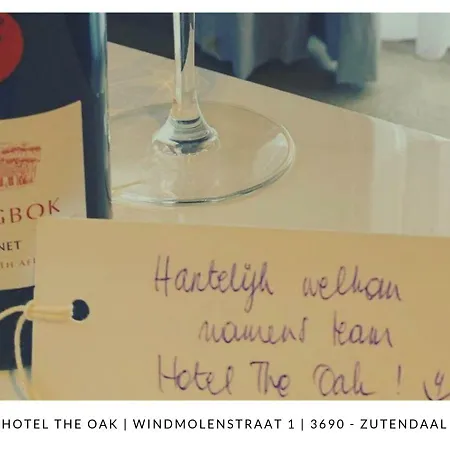 GBOK
NET
TH AF
Hartelijk welkom
namens team
Hotel The Oak !
HOTEL THE OAK | WINDMOLENSTRAAT 1 | 3690 - ZUTENDAAL